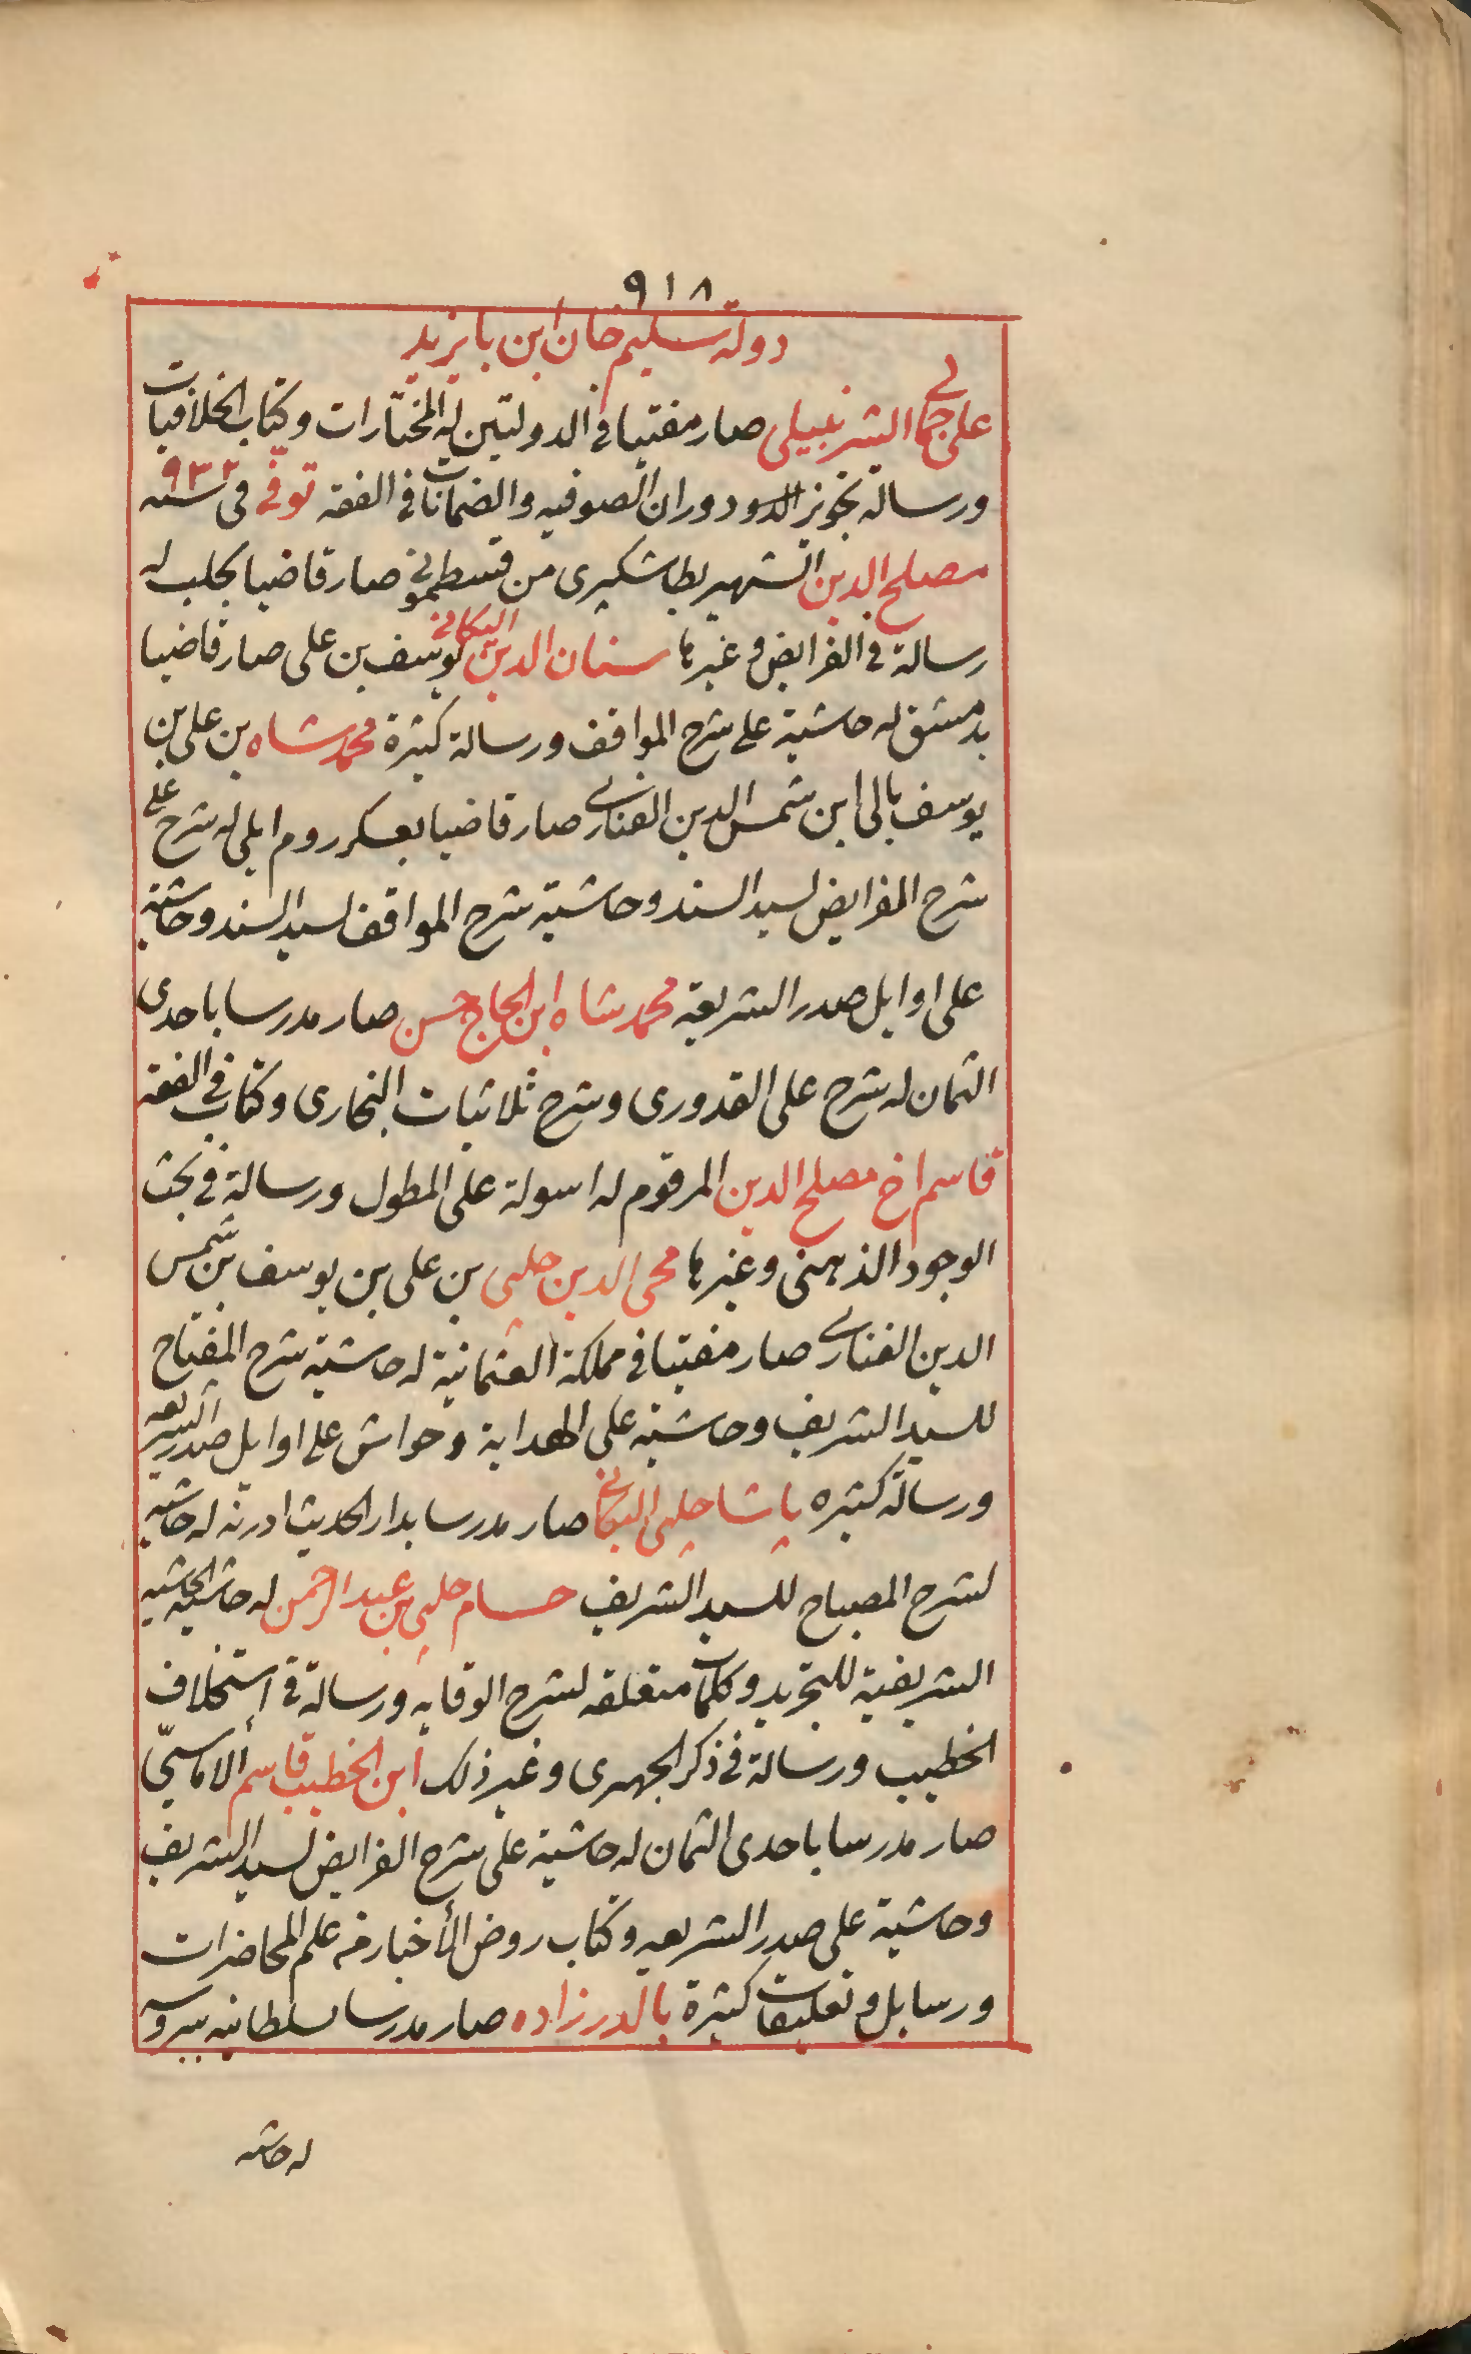 ٩١٨
دولة سليم خان ابن بايزيد
على جمالى الشرنبيلى صار مفتيا فى الدولتين له المختارات وكتاب الخلافيات
ورسالة تجويز الدوران الصوفيه والضمانات فى الفقه توفى فى سنه ٩٣٢
مصلح الدين الشهير بطاشكبرى من قسطمونى صار قاضيا بحلب له
رسالة فى الفرايض وغيرها سنان الدين اليكانى يوسف بن على صار قاضيا
بدمشق له حاشية على شرح المواقف ورسالة كثيرة محمد شاه بن على بن
يوسف بالى ابن شمس الدين الفنارى صار قاضيا بعسكر روم ايلى له شرح على
شرح الفرايض لسيد السند وحاشية شرح المواقف لسيد السند وحاشية
على اوايل صدر الشريعة محمد شاه ابن الحاج حسن صار مدرسا باحدى
الثمان له شرح على القدورى وشرح ثلاثيات البخارى وكتاب فى الفقه
قاسم اخ مصلح الدين المرقوم له اسولة على المطول ورسالة فى بحث
الوجود الذهنى وغيرها محى الدين چلبى بن على بن يوسف بن شمس
الدين الفنارى صار مفتيا فى مملكة العثمانية له حاشية شرح المفتاح
للسيد الشريف وحاشية على الهداية وحواش على اوايل صدر الشريعه
ورسالة كثيره پاشا چلبى اليكانى صار مدرسا بدار الحديث ادرنه له حاشية
لشرح المصباح للسيد الشريف حسام چلبى بن عبد الرحمن له حاشية لحاشية
الشريفية للتجريد وكلمات متعلقه لشرح الوقايه ورسالة فى استخلاف
الخطيب ورسالة فى ذكر الجهرى وغير ذلك ابن الخطيب قاسم الاماسى
صار مدرسا باحدى الثمان له حاشية على شرح الفرايض لسيد الشريف
وحاشية على صدر الشريعه وكتاب روض الأخبار فى علم المحاضرات
ورسايل وتعليقات كثيرة بالدر زاده صار مدرسا سلطانيه ببروسه
له حاشيه